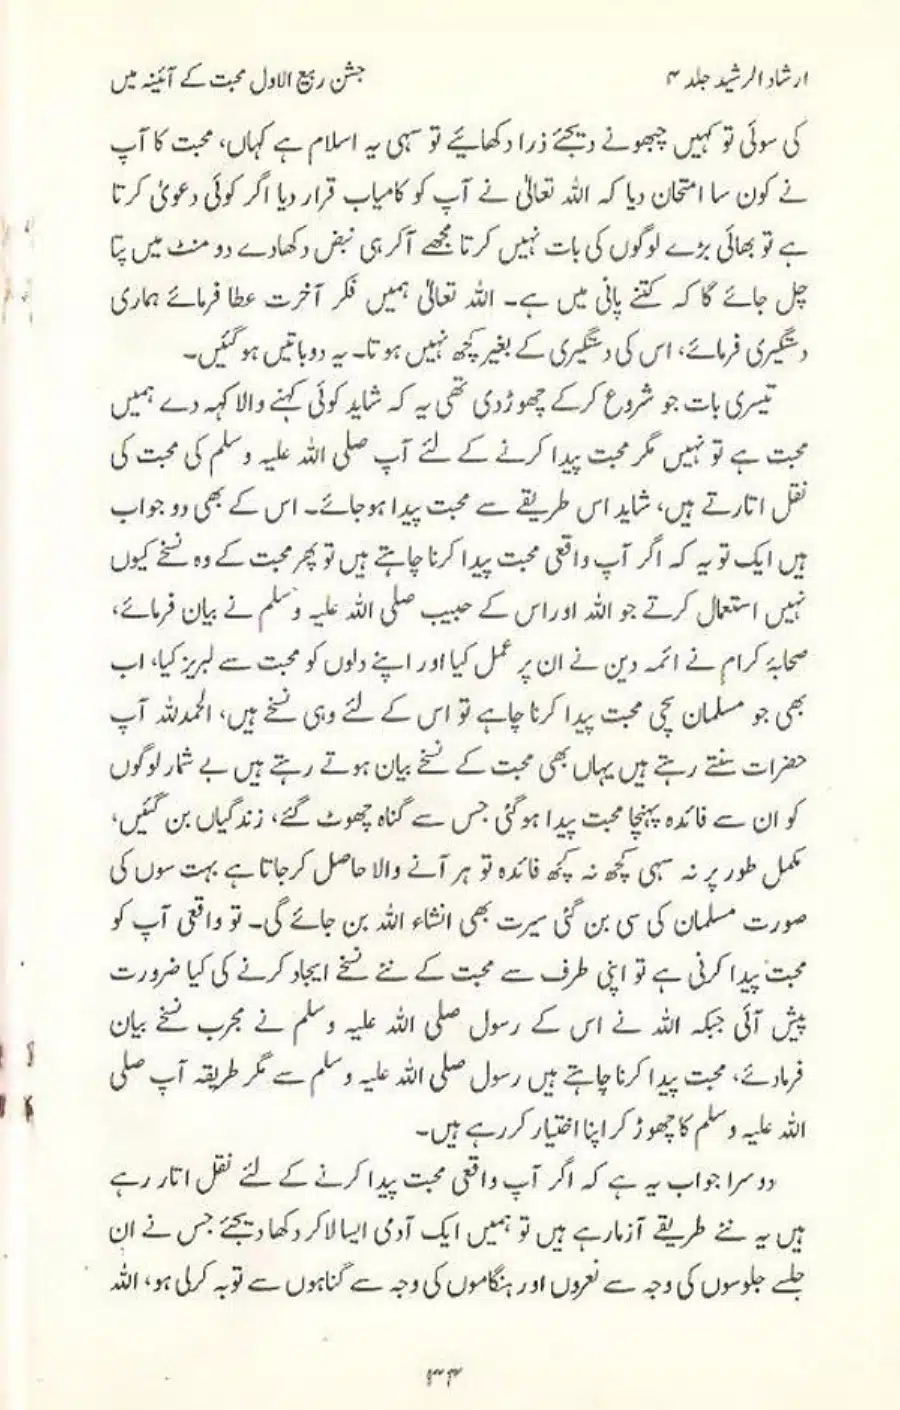 ارشاد الرشید جلد ۴
جشن ربیع الاول محبت کے آئینہ میں
کی سوئی تو کہیں چبھونے دیجئے ذرا دکھائیے تو سہی یہ اسلام ہے کہاں، محبت کا آپ
نے کون سا امتحان دیا کہ اللہ تعالیٰ نے آپ کو کامیاب قرار دیا اگر کوئی دعویٰ کرتا
ہے تو بھائی بڑے لوگوں کی بات نہیں کرتا مجھے آکر ہی نبض دکھادے دو منٹ میں پتا
چل جائے گا کہ کتنے پانی میں ہے۔ اللہ تعالیٰ ہمیں فکر آخرت عطا فرمائے ہماری
دستگیری فرمائے، اس کی دستگیری کے بغیر کچھ نہیں ہوتا۔ یہ دو باتیں ہوگئیں۔
تیسری بات جو شروع کرکے چھوڑدی تھی یہ کہ شاید کوئی کہنے والا کہہ دے ہمیں
محبت ہے تو نہیں مگر محبت پیدا کرنے کے لئے آپ صلی اللہ علیہ وسلم کی محبت کی
نقل اتارتے ہیں، شاید اس طریقے سے محبت پیدا ہوجائے۔ اس کے بھی دو جواب
ہیں ایک تو یہ کہ اگر آپ واقعی محبت پیدا کرنا چاہتے ہیں تو پھر محبت کے وہ نسخے کیوں
نہیں استعمال کرتے جو اللہ اور اس کے حبیب صلی اللہ علیہ وسلم نے بیان فرمائے،
صحابۂ کرام نے ائمہ دین نے ان پر عمل کیا اور اپنے دلوں کو محبت سے لبریز کیا، اب
بھی جو مسلمان سچی محبت پیدا کرنا چاہے تو اس کے لئے وہی نسخے ہیں، الحمدللہ آپ
حضرات سنتے رہتے ہیں یہاں بھی محبت کے نسخے بیان ہوتے رہتے ہیں بے شمار لوگوں
کو ان سے فائدہ پہنچا محبت پیدا ہوگئی جس سے گناہ چھوٹ گئے، زندگیاں بن گئیں،
مکمل طور پر نہ سہی کچھ نہ کچھ فائدہ تو ہر آنے والا حاصل کرجاتا ہے بہت سوں کی
صورت مسلمان کی سی بن گئی سیرت بھی انشاء اللہ بن جائے گی۔ تو واقعی آپ کو
محبت پیدا کرنی ہے تو اپنی طرف سے محبت کے نئے نسخے ایجاد کرنے کی کیا ضرورت
پیش آئی جبکہ اللہ نے اس کے رسول صلی اللہ علیہ وسلم نے مجرب نسخے بیان
فرمادئے، محبت پیدا کرنا چاہتے ہیں رسول صلی اللہ علیہ وسلم سے مگر طریقہ آپ صلی
اللہ علیہ وسلم کا چھوڑ کر اپنا اختیار کر رہے ہیں۔
دوسرا جواب یہ ہے کہ اگر آپ واقعی محبت پیدا کرنے کے لئے نقل اتار رہے
ہیں یہ نئے طریقے آزمارہے ہیں تو ہمیں ایک آدمی ایسا لاکر دکھا دیجئے جس نے ان
جلسے جلوسوں کی وجہ سے نعروں اور ہنگاموں کی وجہ سے گناہوں سے توبہ کرلی ہو، اللہ
۳۴